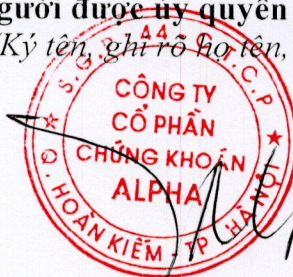 gười được ủy quyền
Ký tên, ghi rõ họ tên,
CÔNG TY
CỔ PHẦN
CHỨNG KHOÁN
ALPHA
Q. HOÀN KIẾM - TP HÀ NỘI